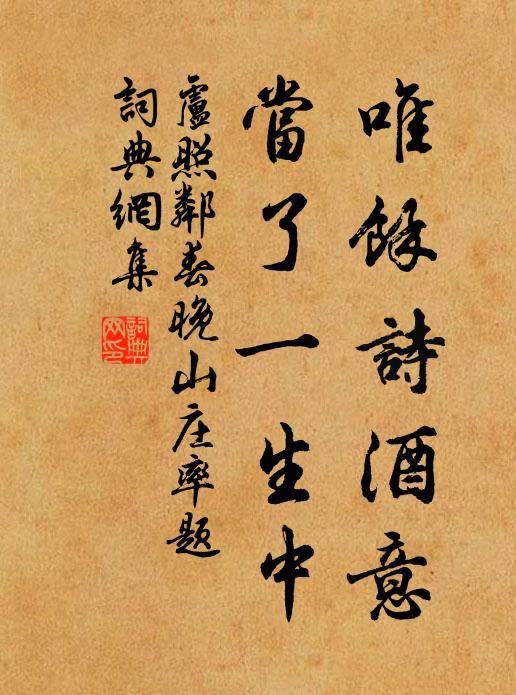 唯餘詩酒意
當了一生中
盧照鄰春晚山庄率題
詞典網集
詞典网印